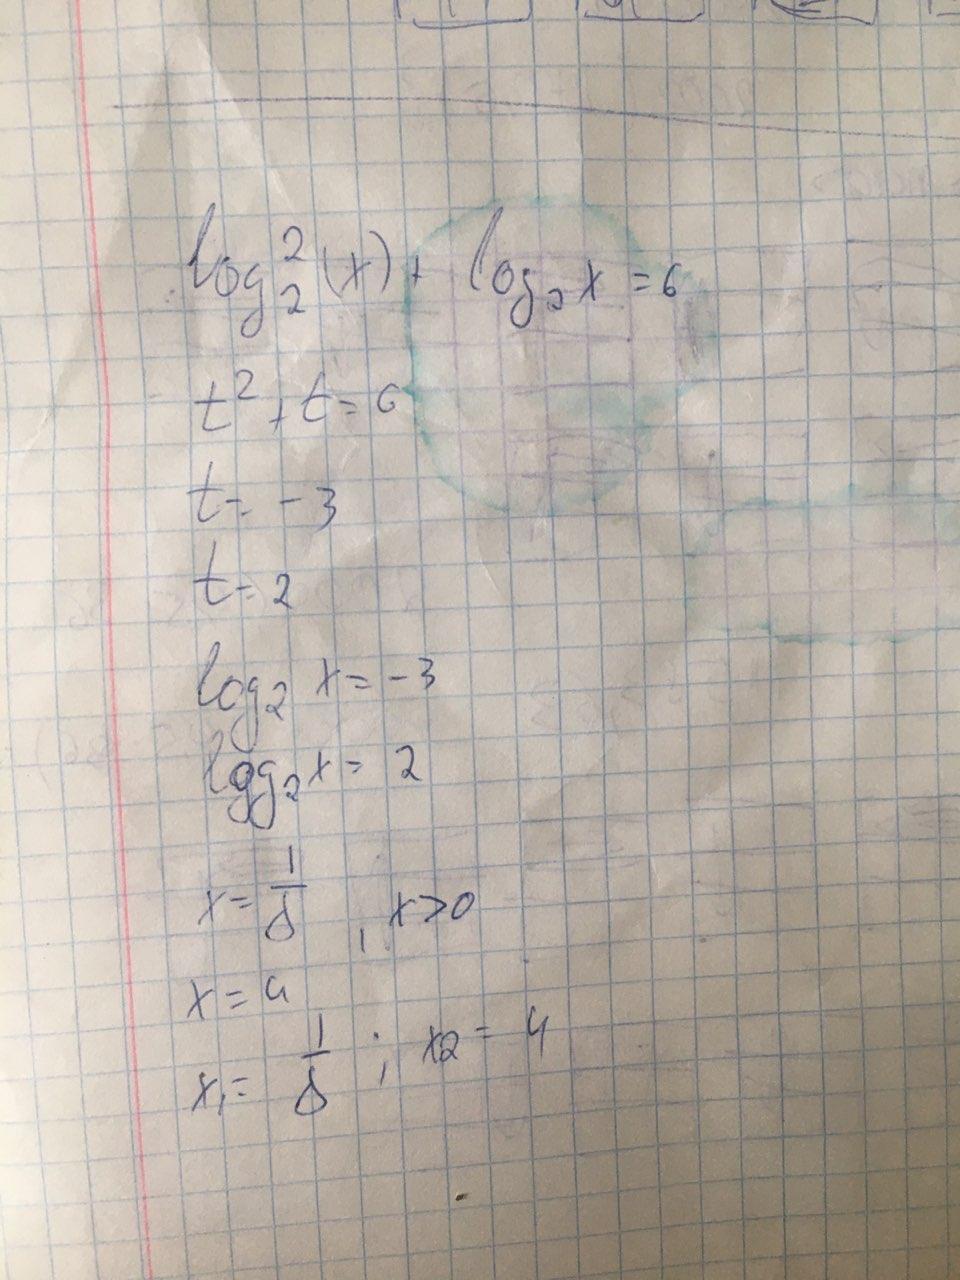 log₂²(x) + log₂x = 6
t² + t = 6
t = -3
t = 2
log₂ x = -3
log₂ x = 2
x = 1/8 , x > 0
x = 4
x₁ = 1/8 ; x2 = 4